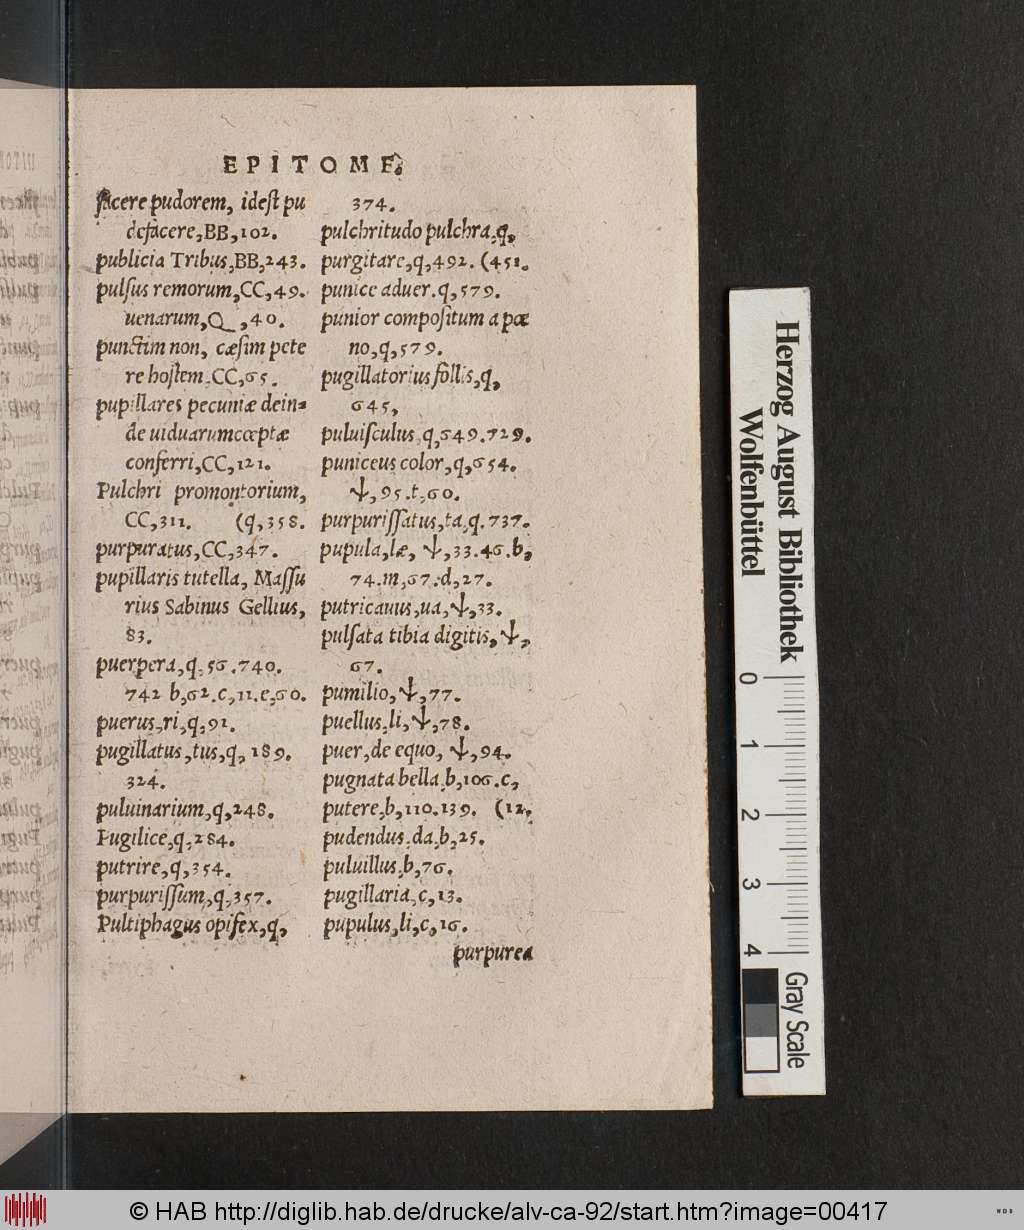 EPITOME.
facere pudorem, idest pu
defacere, BB, 102.
publicia Tribus, BB, 243.
pulsus remorum, CC, 49.
uenarum, Q, 40.
punctim non, cæsim pete
re hostem, CC, 65.
pupillares pecuniæ dein=
de uiduarum cœptæ
conferri, CC, 121.
Pulchri promontorium,
CC, 311. (q, 358.
purpuratus, CC, 347.
pupillaris tutella, Massu
rius Sabinus Gellius,
83.
puerpera, q, 56. 740.
742 b, 62. c, 11. e, 60.
puerus, ri, q, 91.
pugillatus, tus, q, 189.
324.
puluinarium, q, 248.
Pugilice, q, 284.
putrire, q, 354.
purpurissum, q, 357.
Pultiphagus opifex, q,
374.
pulchritudo pulchra, q,
purgitare, q, 492. (451.
punice aduer. q, 579.
punior compositum a pœ
no, q, 579.
pugillatorius follis, q,
645,
puluisculus, q, 649. 729.
puniceus color, q, 654.
ↆ, 95. t, 60.
purpurissatus, ta, q. 737.
pupula, læ, ↆ, 33. 46. b,
74. m, 67. d, 27.
putricauus, ua, ↆ, 33.
pulsata tibia digitis, ↆ,
67.
pumilio, ↆ, 77.
puellus, li, ↆ, 78.
puer, de equo, ↆ, 94.
pugnata bella, b, 106. c,
putere, b, 110. 139. (12,
pudendus, da, b, 25.
puluillus, b, 76.
pugillaria, c, 13.
pupulus, li, c, 16.
purpurea
Herzog August Bibliothek
Wolfenbüttel
0 1 2 3 4
Gray Scale
© HAB http://diglib.hab.de/drucke/alv-ca-92/start.htm?image=00417